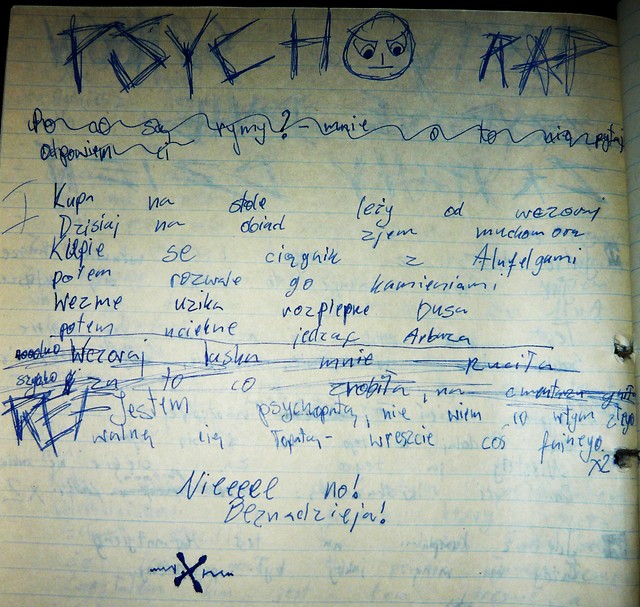 PSYCHO RAP
Po co są rymy? - mnie o to nie pytaj
odpowiem ci
I Kupa na stole leży od wczoraj
Dzisiaj na obiad zjem muchomora
Kupie se ciągnik z Alufelgami
potem rozwale go kamieniami
Wezme uzika rozpieprze Busa
potem uciekne jedząc Arbuza
Wczoraj laska mnie rzuciła
szybko za to co zrobiła, na cmentarz
REF Jestem psychopatą, nie wiem co w tym złego
walną cię łopatą - wreszcie coś fajnego x2
Nieeeee no!
Beznadzieja!